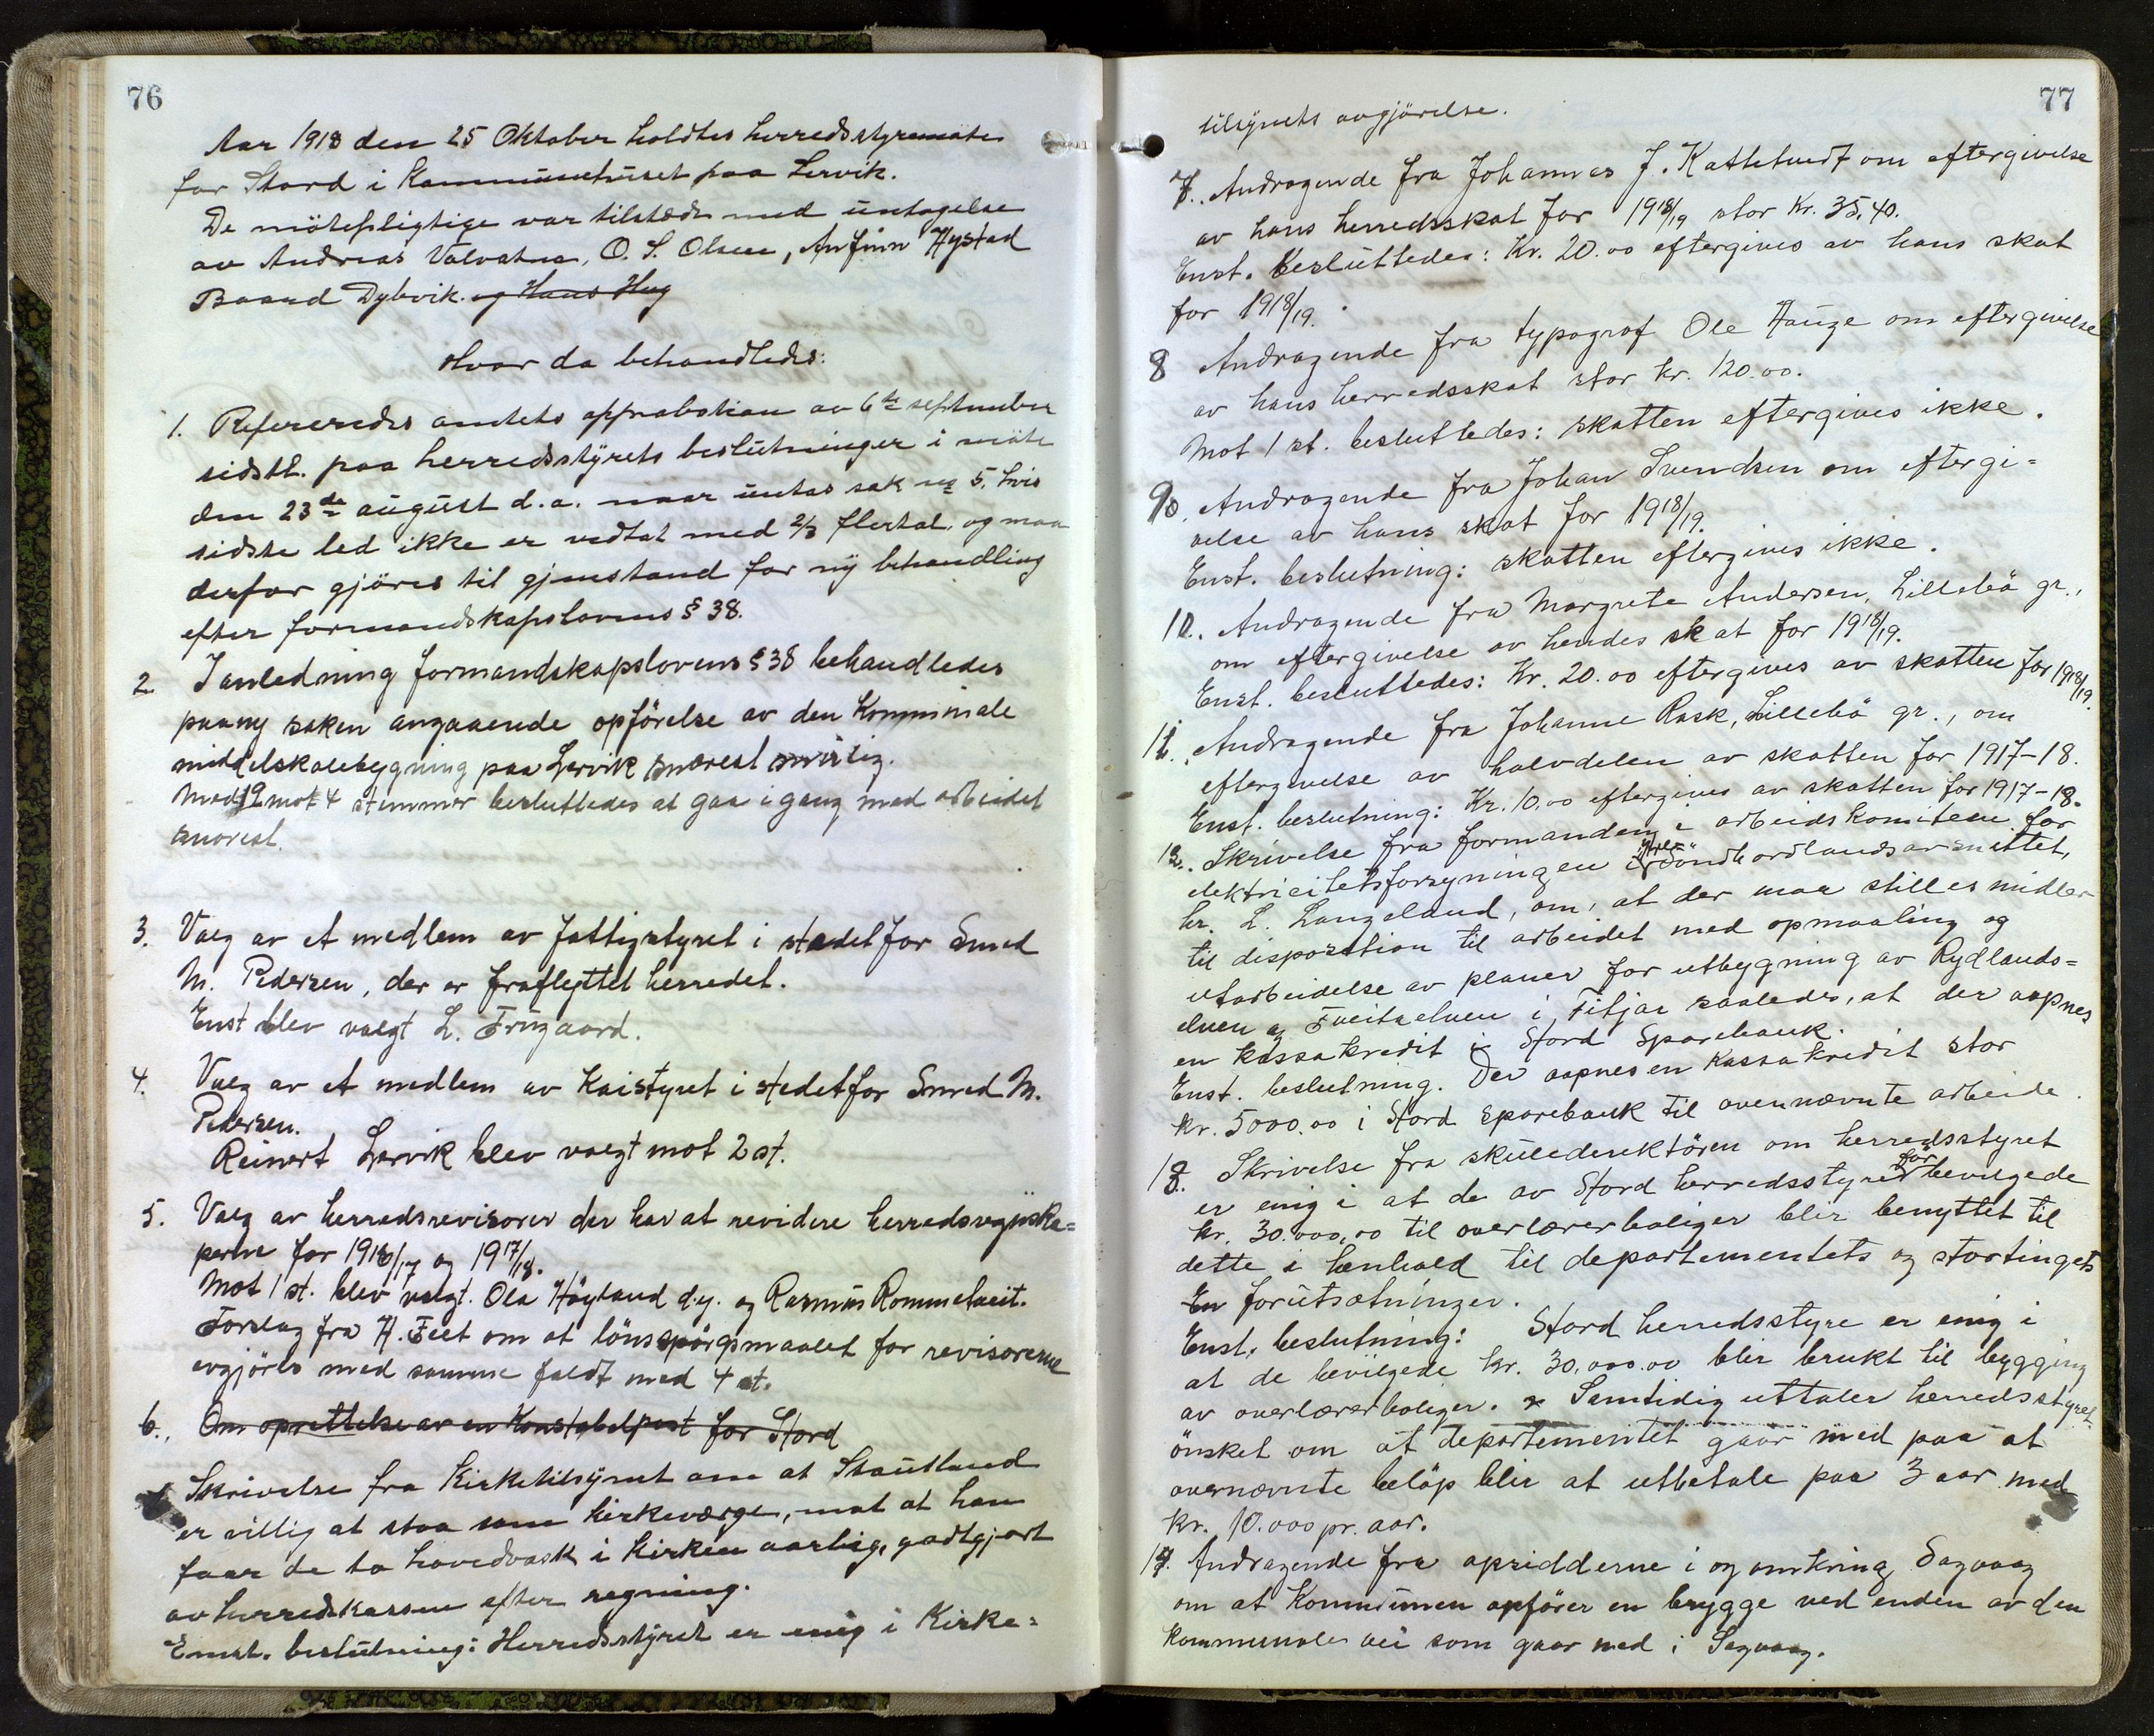 76
Aar 1918 den 25 Oktober holdtes herredsstyremöte
for Stord i Kommunehuset paa Lervik.
De mötepligtige var tilstæde med untagelse
av Andreas Valvatna, O. S. Olsen, Anfinn Hystad
Baard Dybvik. og Hans Hug
Hvor da behandledes:
1. Refereredes amtets approbation av 6te september
sidstl. paa herredsstyrets beslutninger i möte
den 23de august d.a. naar untas sak no 5, hvis
sidste led ikke er vedtat med 2/3 flertal, og maa
derfor gjöres til gjenstand for ny behandling
efter formandskapslovens § 38.
2. I anledning formandskapslovens § 38 behandledes
paany saken angaaende opförelse av den Kommunale
middelskolebygning paa Lervik snarest mulig.
Med 19 mot 4 stemmer besluttedes at gaa igang med arbeidet
snarest.
3. Valg av et medlem av fattigstyret i stedet for Smed
M. Pedersen, der er fraflyttet herredet.
Enst blev valgt L. Frugaard.
4. Valg av et medlem av Kaistyret i stedet for Smed M.
Pedersen.
Reinert Lervik blev valgt mot 2 st.
5. Valg av herredsrevisorer der har at revidere herredsregnska=
perne for 1916/17 og 1917/18.
Mot 1 st. blev valgt. Ola Höyland d.y. og Rasmus Rommetveit.
Forslag fra H. Feet om at lönsspörgsmaalet for revisorerne
avgjöres med samme faldt med 4 st.
6. Om oprettelse av en Konstabelpost for Stord
Skrivelse fra Kirketilsynet om at Stautland
er villig at staa som kirkeværge, mot at han
faar de to hovedvask i Kirken aarlig, godtgjort
av herredskassen efter regning.
Enst. beslutning: Herredsstyret er enig i Kirke=
77
tilsynets avgjörelse.
7. Andragende fra Johannes J. Kattetvedt om eftergivelse
av hans herredsskat for 1918/19 stor Kr. 35,40.
Enst. besluttedes: Kr. 20.00 eftergives av hans skat
for 1918/19.
8 Andragende fra typograf Ole Hauge om eftergivelse
av hans herredsskat stor kr. 120.00.
Mot 1 st. besluttedes: skatten eftergives ikke.
9. Andragende fra Johan Svendsen om eftergi=
velse av hans skat for 1918/19.
Enst. beslutning: skatten eftergives ikke.
10. Andragende fra Margrete Andersen, Lillebö gr.,
om eftergivelse av hendes skat for 1918/19.
Enst. besluttedes: Kr. 20.00 eftergives av skatten for 1918/19.
11. Andragende fra Johanne Rask, Lillebö gr., om
eftergivelse av halvdelen av skatten for 1917-18.
Enst. beslutning: Kr. 10,00 eftergives av skatten for 1917-18.
12. Skrivelse fra formanden i arbeidskomiteen for
elektricitetsforsyningen i ytre Söndhordlandsavsnittet,
hr. L. Langeland, om, at der maa stilles midler
til disposition til arbeidet med opmaaling og
utarbeidelse av planer for utbygning av Rydlands=
elven og Tveitaelven i Fitjar saaledes, at der aapnes
en kassakredit i Stord Sparebank.
Enst. beslutning. Der aapnes en Kassakredit stor
kr. 5000.00 i Stord Sparebank til ovennævnte arbeide.
13. Skrivelse fra skuledirektören om herredsstyret
er enig i at de av Stord herredsstyre för bevilgede
kr. 30.000,00 til overlærerboliger blir benyttet til
dette i henhold til departementets og stortingets
En forutsætninger.
Enst. beslutning: Stord herredsstyre er enig i
at de bevilgede kr. 30.000.00 blir brukt til bygging
av overlærerboliger. Samtidig uttaler herredsstyret
önsket om at departementet gaar med paa at
overnævnte belöp blir at utbetale paa 3 aar med
kr. 10.000 pr. aar.
14. Andragende fra opsidderne i og omkring Sagvaag
om at Kommunen opförer en brygge ved enden av den
kommunale vei som gaar ned i Sagvaag.